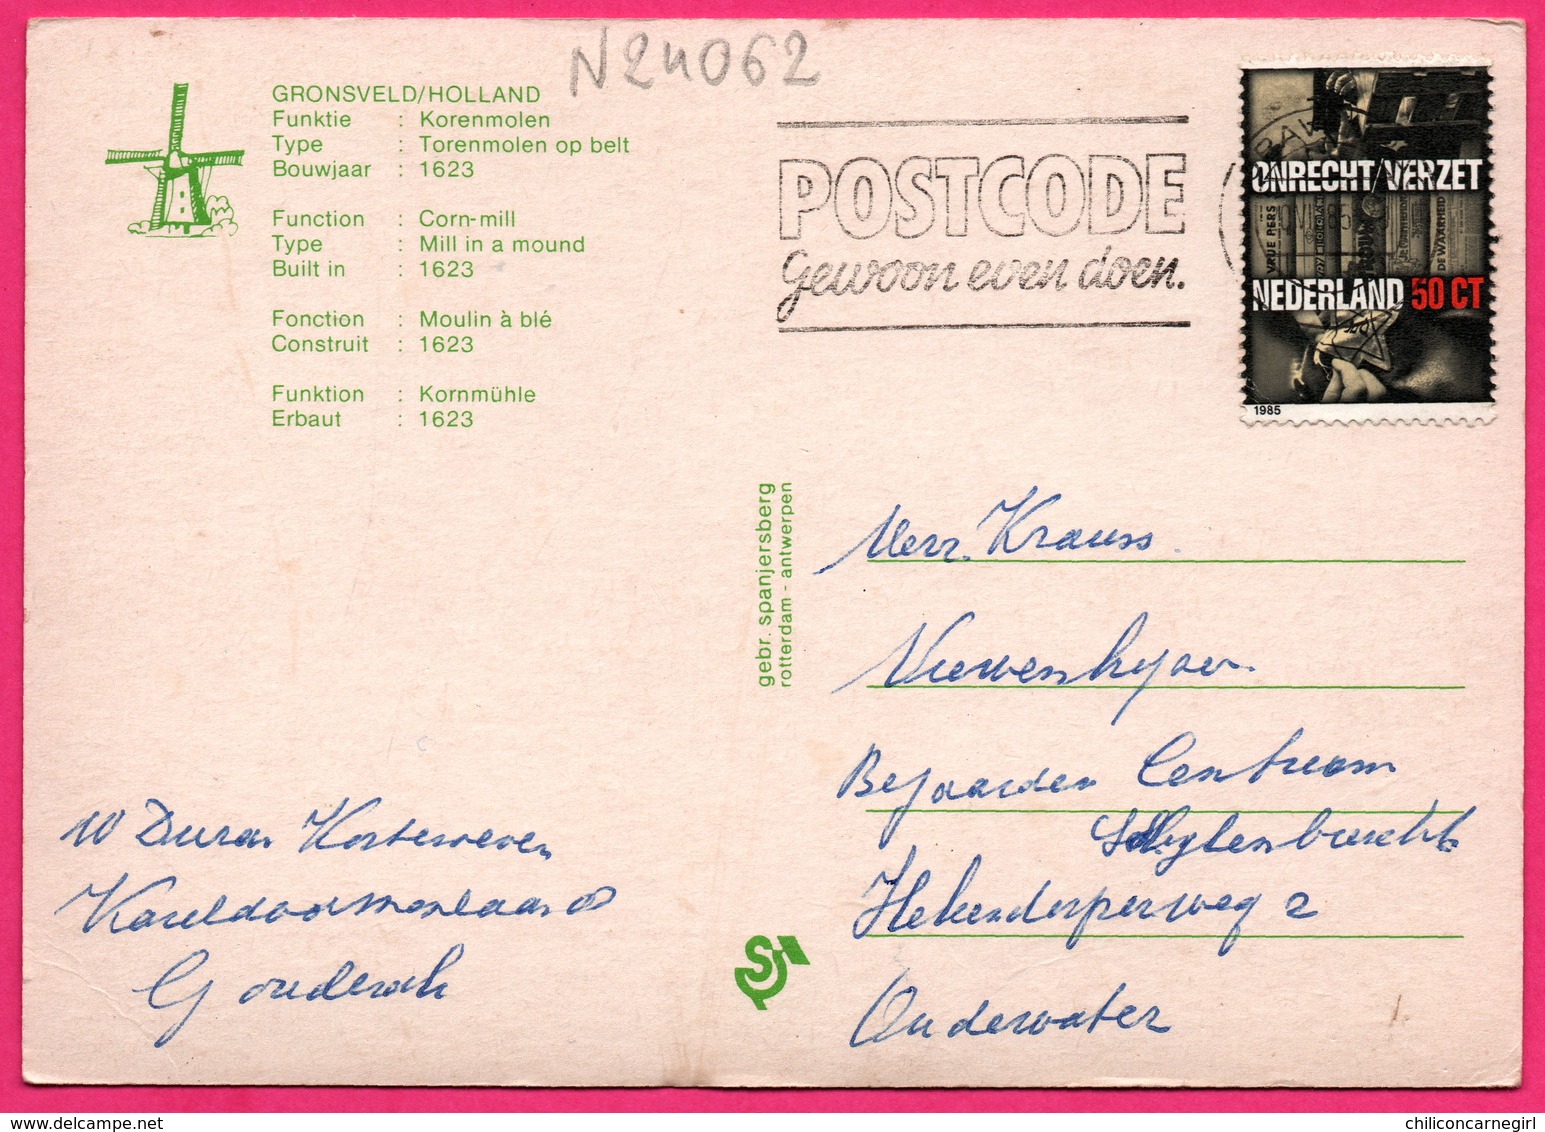 N24062
GRONSVELD/HOLLAND
Funktie : Korenmolen
Type : Torenmolen op belt
Bouwjaar : 1623
Function : Corn-mill
Type : Mill in a mound
Built in : 1623
Fonction : Moulin à blé
Construit : 1623
Funktion : Kornmühle
Erbaut : 1623
POSTCODE
gewoon even doen.
ONRECHT/VERZET
VRIJE
TROUW
DE WAARHEID
NEDERLAND 50 CT
1985
gebr. spanjersberg
rotterdam - antwerpen
Herr. Krauss
Bejaarden Centrum
Hekendorperweg 2
Oudewater
W Duran
Kareldoormanlaan
Gouderak
S
chiliconcarnegirl / delcampe.net